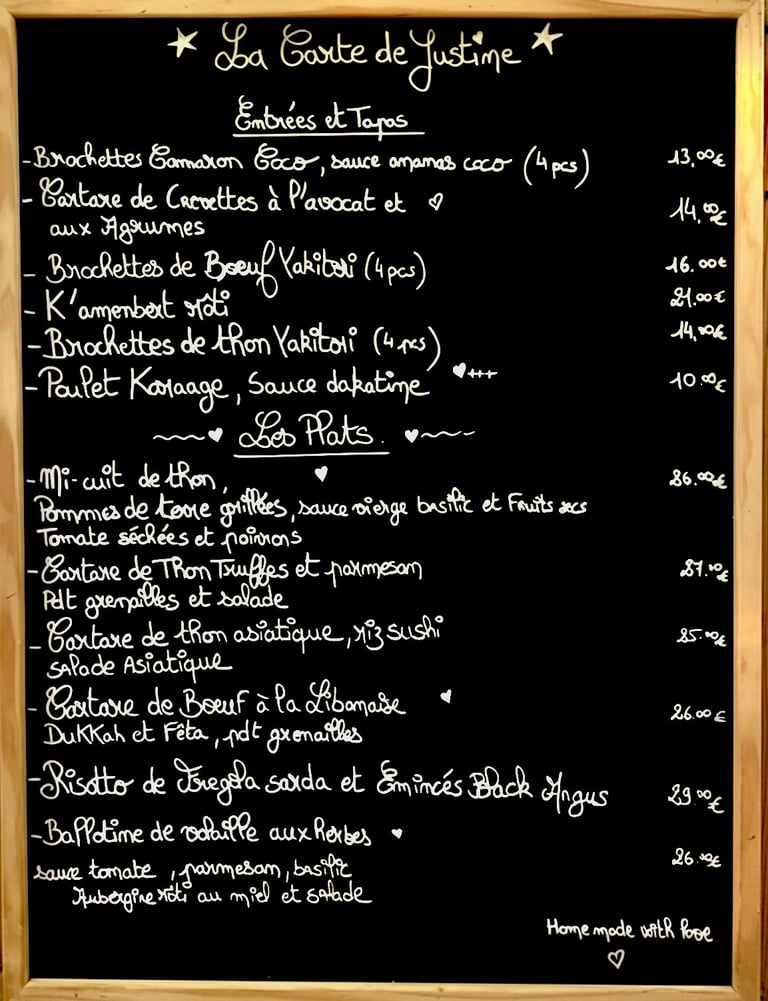 La Carte de Justine
Entrées et Tapas
- Brochettes Camaron Coco, sauce ananas coco (4 pcs) 13,00€
- Tartare de Crevettes à l'avocat et 14,00€
aux Agrumes
- Brochettes de Boeuf Yakitori (4 pcs) 16.00€
- K'amenbert rôti 21.00€
- Brochettes de thon Yakitori (4 pcs) 14,00€
- Poulet Karaage, Sauce dakatine +++ 10.00€
Les Plats.
- Mi-cuit de thon, 26.00€
Pommes de terre grillées, sauce vierge basilic et Fruits secs
Tomate séchées et poivrons
- Tartare de Thon Truffes et parmesan 27.00€
Pdt grenailles et salade
- Tartare de thon asiatique, riz sushi 25.00€
Salade Asiatique
- Tartare de Boeuf à la Libanaise 26.00€
Dukkah et Féta, pdt grenailles
- Risotto de Fregola sarda et Émincés Black Angus 29.00€
- Ballotine de volaille aux herbes 26.00€
sauce tomate, parmesan, basilic
Aubergine rôti au miel et salade
Home made with love